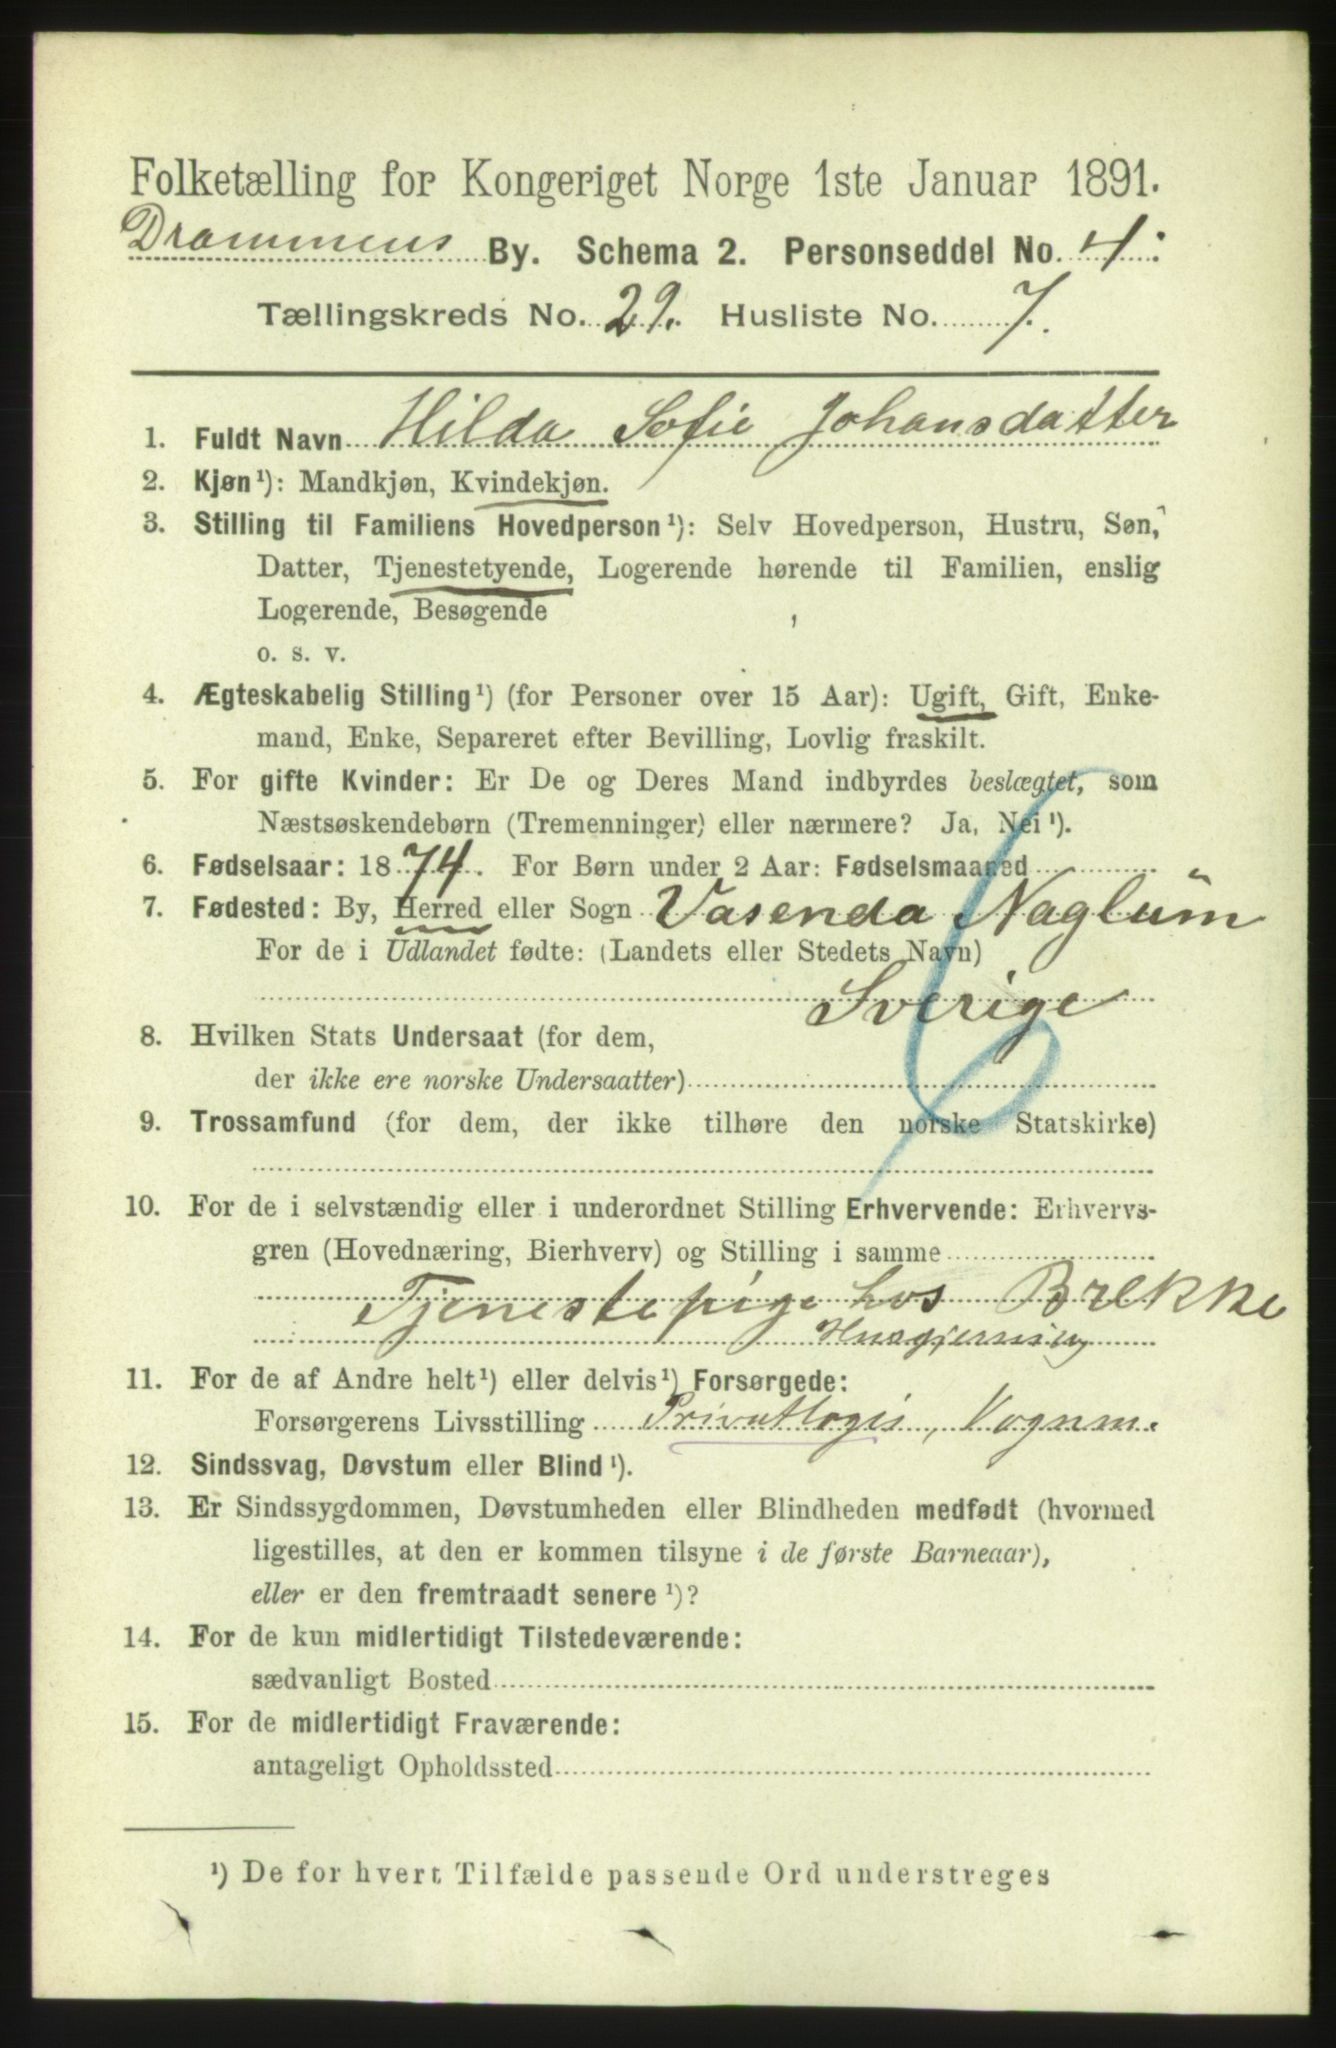 Folketælling for Kongeriget Norge 1ste Januar 1891.
Drammens By. Schema 2. Personseddel No. 4.
Tællingskreds No. 29. Husliste No. 7.
1. Fuldt Navn Hilda Sofie Johansdatter
2. Kjøn¹): Mandkjøn, Kvindekjøn.
3. Stilling til Familiens Hovedperson¹): Selv Hovedperson, Hustru, Søn,
Datter, Tjenestetyende, Logerende hørende til Familien, enslig
Logerende, Besøgende
o. s. v.
4. Ægteskabelig Stilling¹) (for Personer over 15 Aar): Ugift, Gift, Enke-
mand, Enke, Separeret efter Bevilling, Lovlig fraskilt.
5. For gifte Kvinder: Er De og Deres Mand indbyrdes beslægtet, som
Næstsøskendebørn (Tremenninger) eller nærmere? Ja, Nei¹).
6. Fødselsaar: 1874. For Børn under 2 Aar: Fødselsmaaned
7. Fødested: By, Herred eller Sogn Vasenda Naglum
For de i Udlandet fødte: (Landets eller Stedets Navn)
Sverige
8. Hvilken Stats Undersaat (for dem,
der ikke ere norske Undersaatter)
9. Trossamfund (for dem, der ikke tilhøre den norske Statskirke)
10. For de i selvstændig eller i underordnet Stilling Erhvervende: Erhvervs-
gren (Hovednæring, Bierhverv) og Stilling i samme
Tjenestepige hos Brekke
Husgjerning
11. For de af Andre helt¹) eller delvis¹) Forsørgede:
Forsørgerens Livsstilling Privatlogis, Vognm.
12. Sindssvag, Døvstum eller Blind¹).
13. Er Sindssygdommen, Døvstumheden eller Blindheden medfødt (hvormed
ligestilles, at den er kommen tilsyne i de første Barneaar),
eller er den fremtraadt senere¹)?
14. For de kun midlertidigt Tilstedeværende:
sædvanligt Bosted
15. For de midlertidigt Fraværende:
antageligt Opholdssted
¹) De for hvert Tilfælde passende Ord understreges